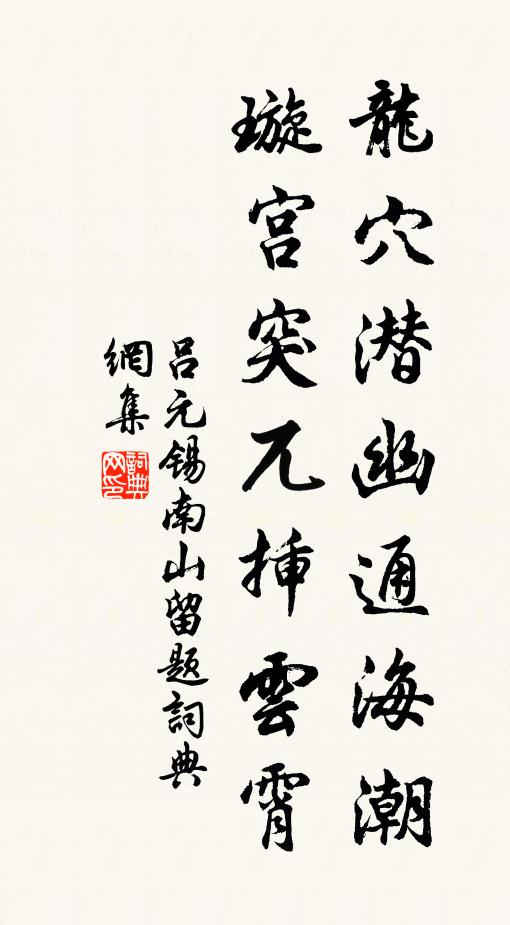 龍穴潛幽通海潮
璇宮突兀插雲霄
呂元錫南山留題詞典
網集
詞典
网印